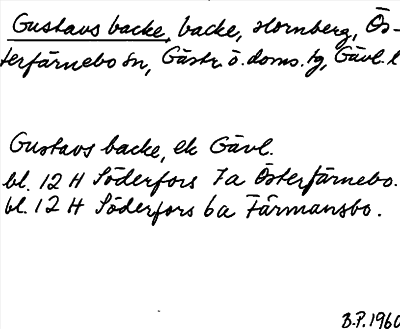 Gustavs backe, backe, Hornberg, Ös-
terfärnebo sn, Gästr. ö. doms. tg, Gävl. l
Gustavs backe, ek Gävl.
bl. 12 H Söderfors 7a Österfärnebo.
bl. 12 H Söderfors 6a Färmansbo.
B.P. 1960